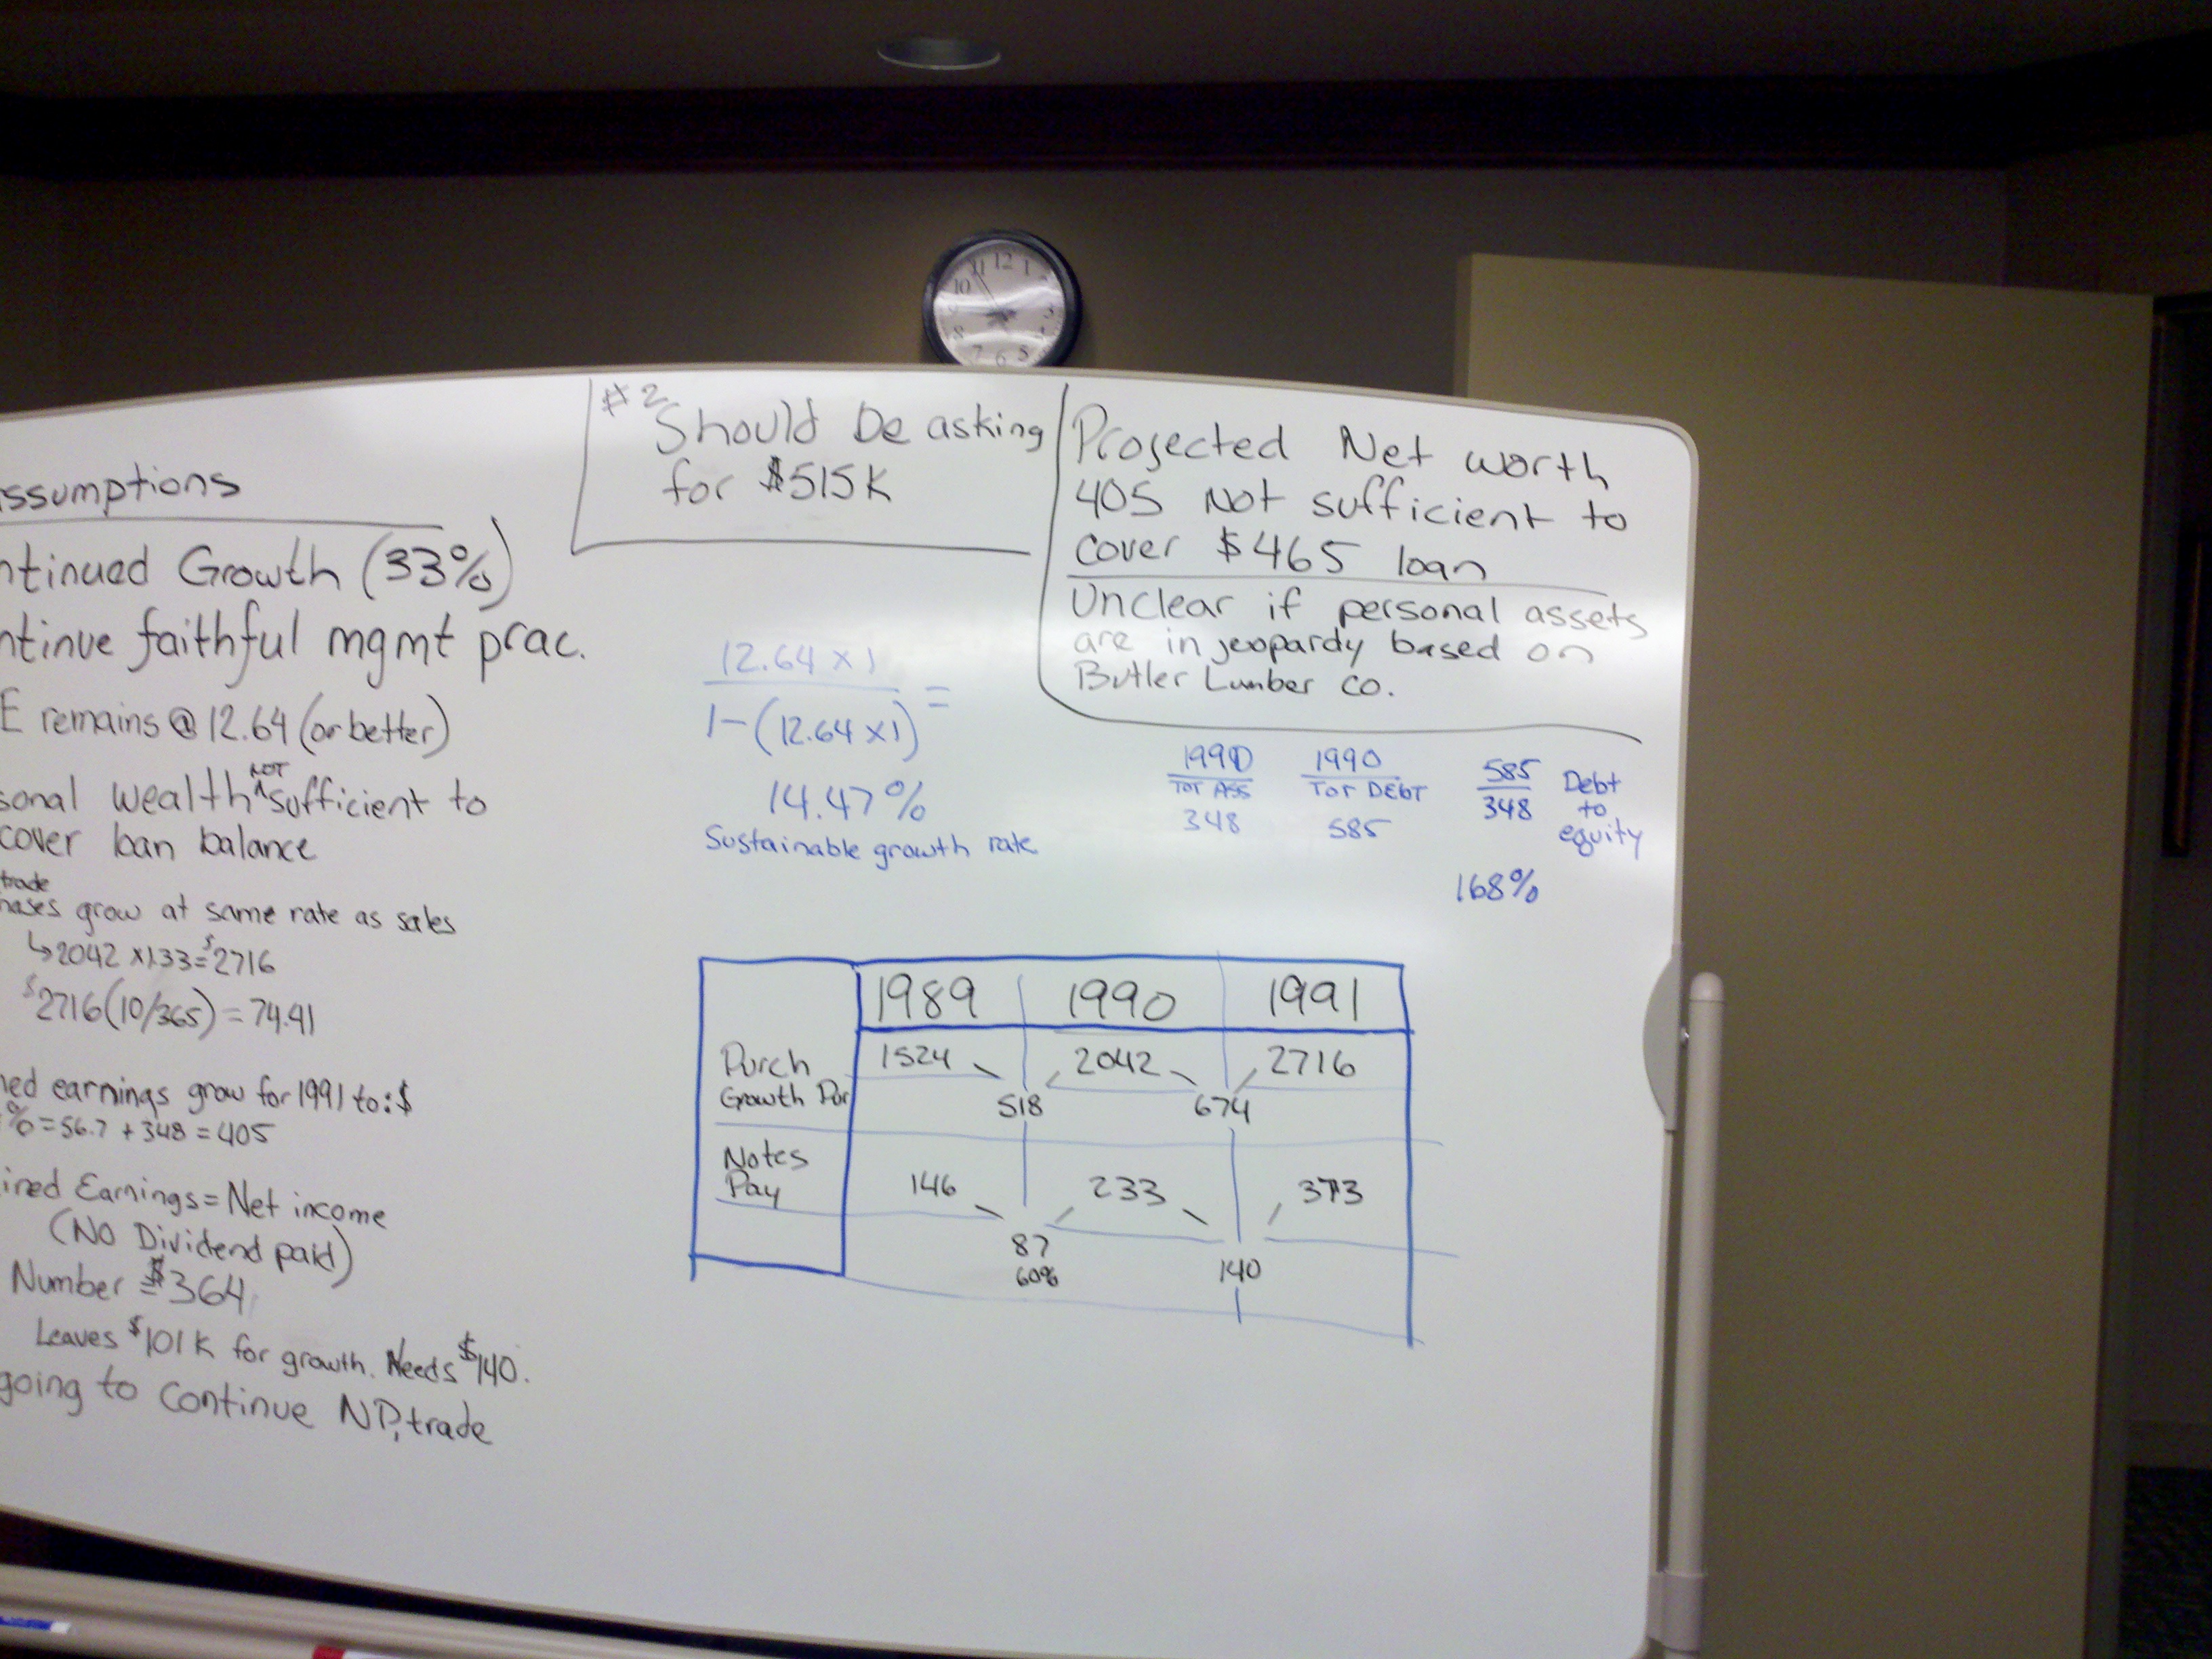 12
11
1
10
9
3
8
4
7
6
5
#2
Should be asking
for $515K
Projected Net worth
405 Not sufficient to
cover $465 loan
Unclear if personal assets
are in jeopardy based on
Butler Lumber co.
ssumptions
ntinued Growth (33%)
ntinue faithful mgmt prac.
E remains @ 12.64 (or better)
sonal wealth NOT sufficient to
cover loan balance
trade
hases grow at same rate as sales
↳2042 x1.33=$2716
$2716(10/365) = 74.41
ned earnings grow for 1991 to: $
% = 56.7 + 348 = 405
ined Earnings = Net income
(No Dividend paid)
Number = $364
Leaves $101K for growth. Needs $140.
going to continue NP, trade
12.64 x 1
1-(12.64 x 1) =
14.47%
Sustainable growth rate
1990 1990 585 Debt
TOT ASS TOT DEBT 348 to
348 585 equity
168%
1989 1990 1991
Purch 1524 2042 2716
Growth Pur 518 674
Notes
Pay 146 233 373
87 140
60%